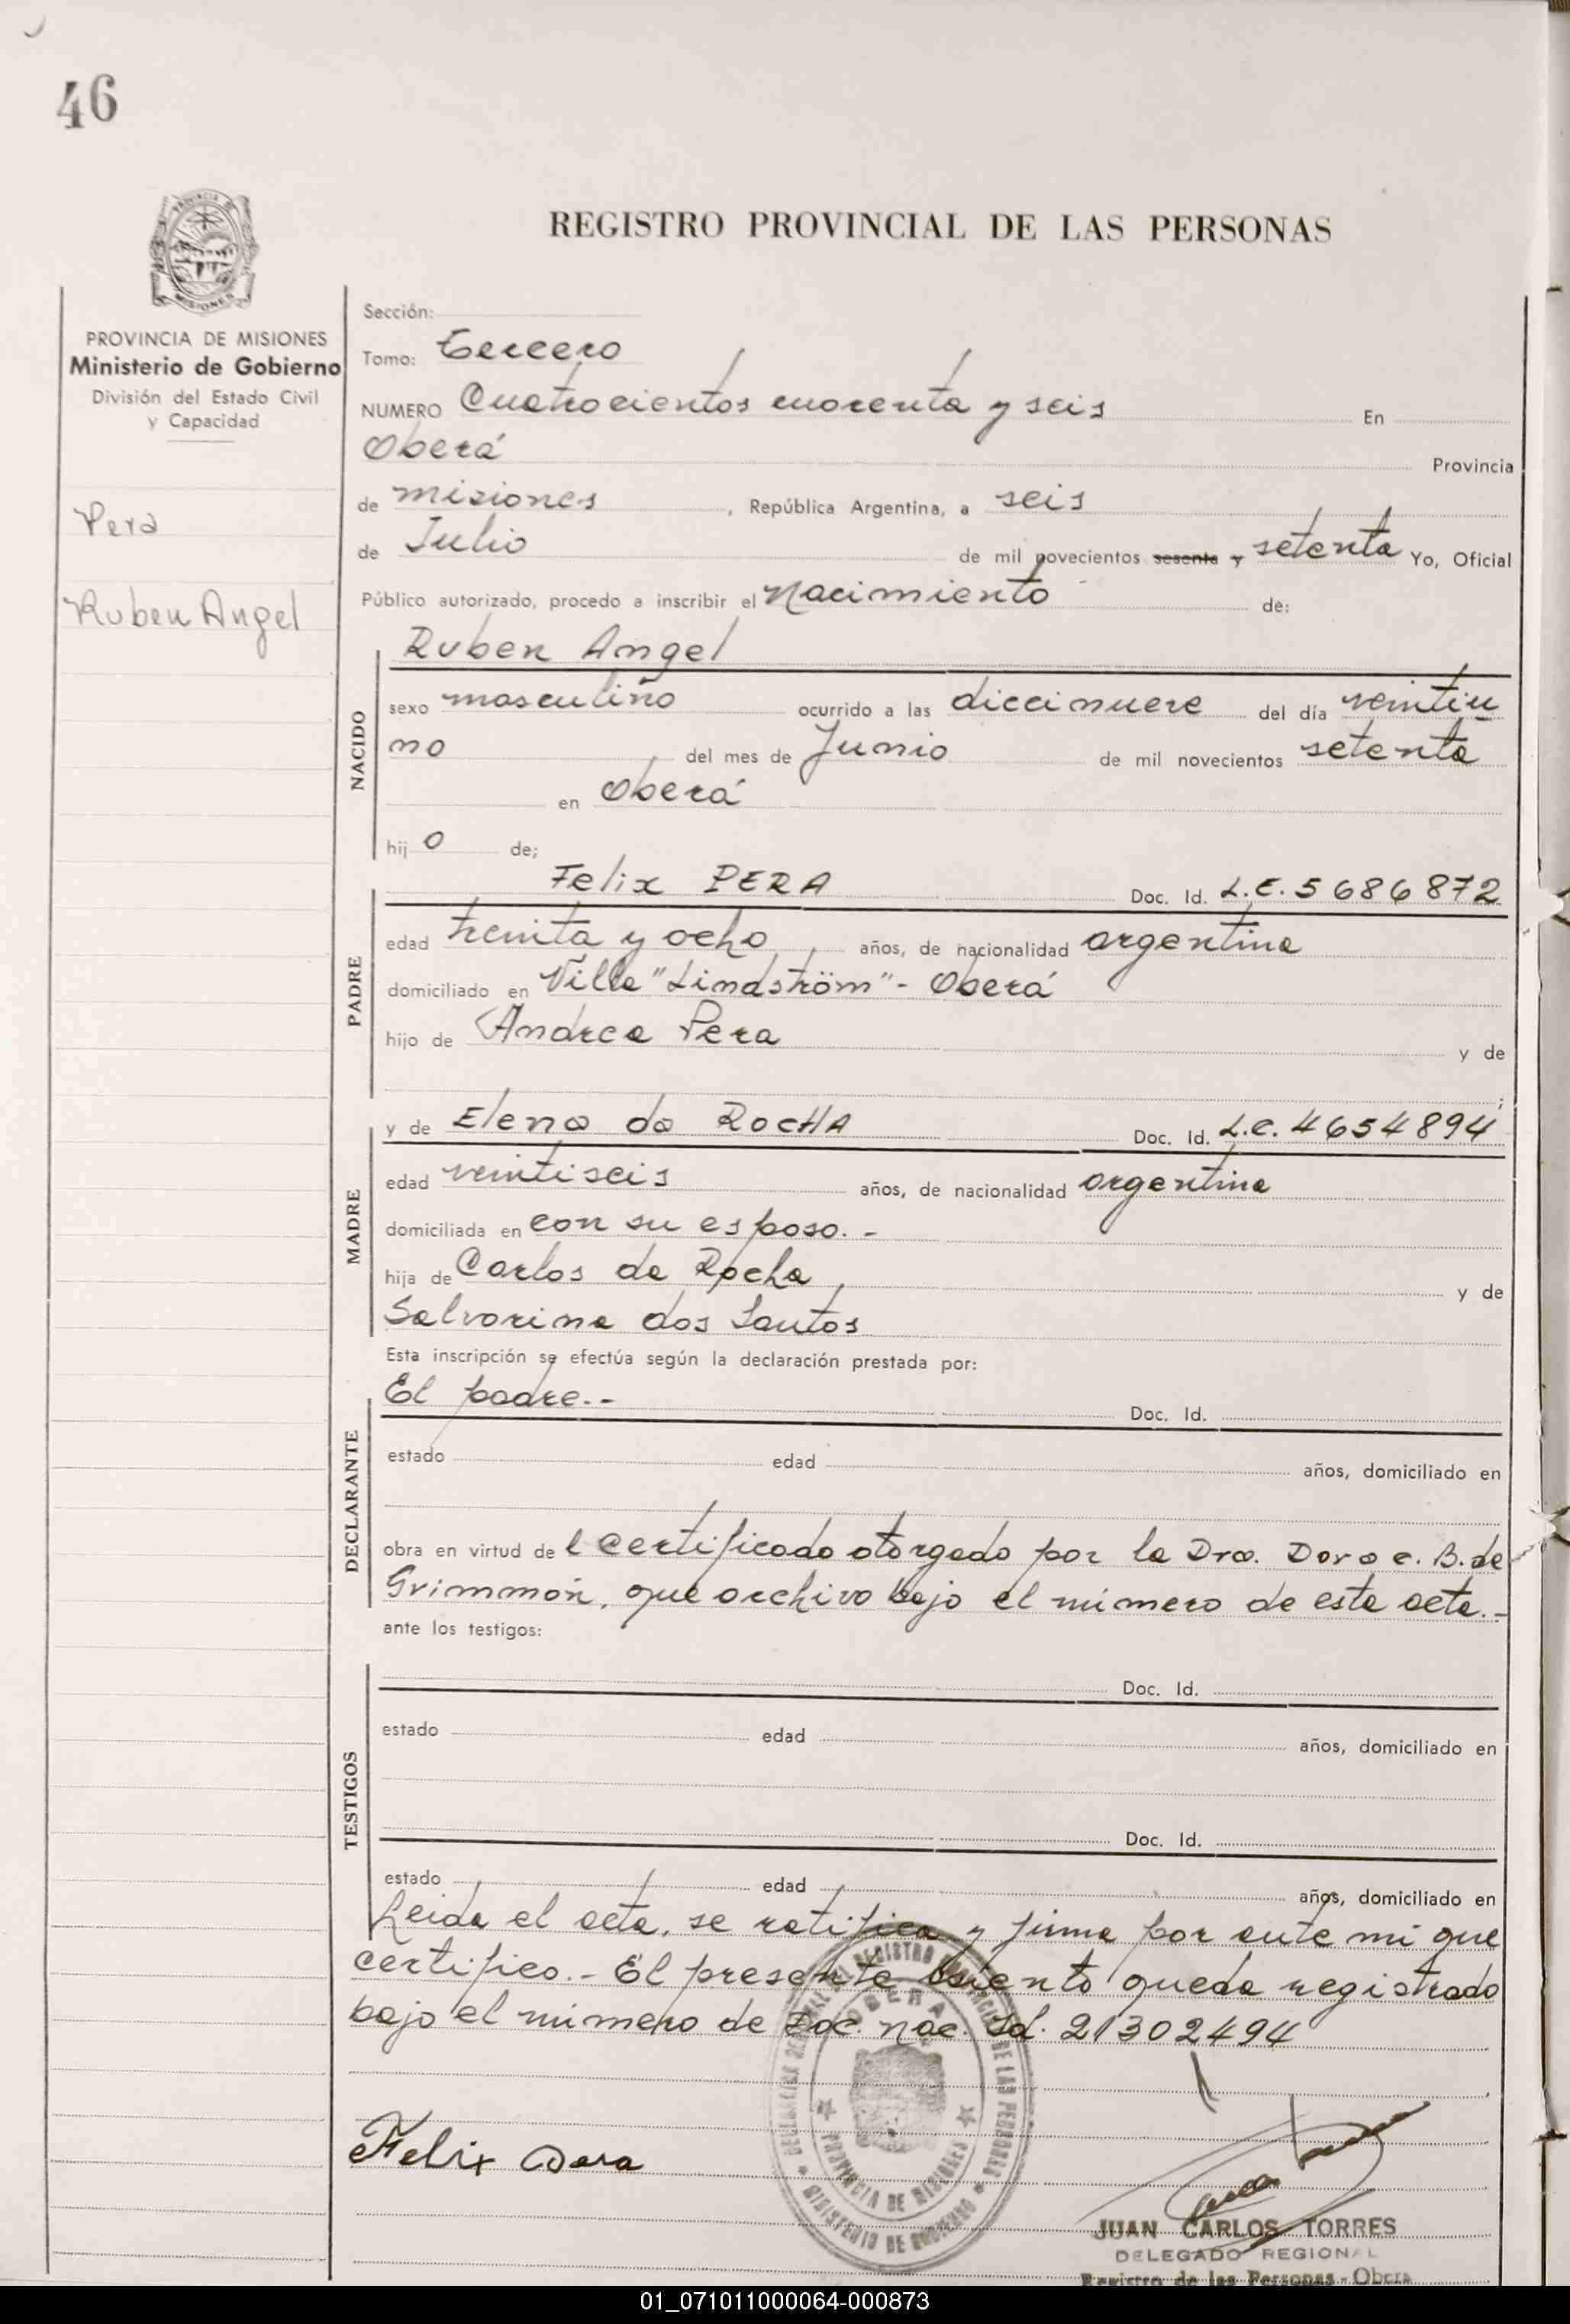 46
REGISTRO PROVINCIAL DE LAS PERSONAS
PROVINCIA DE MISIONES
Ministerio de Gobierno
División del Estado Civil
y Capacidad
Pera
Ruben Angel
Sección:
Tomo: tercero
NUMERO Cuatrocientos cuarenta y seis En
Oberá Provincia
de misiones , República Argentina, a seis
de Julio de mil novecientos sesenta y setenta Yo, Oficial
Público autorizado, procedo a inscribir el nacimiento de:
Ruben Angel
NACIDO
sexo masculino ocurrido a las diecinueve del día veintiu
no del mes de Junio de mil novecientos setenta
en Oberá
hij o de;
Felix PERA Doc. Id. L.E. 5686872
PADRE
edad treinta y ocho años, de nacionalidad argentina
domiciliado en Villa "Lindström" - Oberá
hijo de Andrea Pera y de
;
y de Elena da ROCHA Doc. Id. L.C. 4654894
MADRE
edad veintiseis años, de nacionalidad argentina
domiciliada en con su esposo. -
hija de Carlos da Rocha y de
Salvarina dos Santos
Esta inscripción se efectúa según la declaración prestada por:
El padre.- Doc. Id.
DECLARANTE
estado edad años, domiciliado en
obra en virtud de l certificado otorgado por la Dra. Dora e. B. de
Grimmon, que archivo bajo el número de esta acta.-
ante los testigos:
TESTIGOS
Doc. Id.
estado edad años, domiciliado en
Doc. Id.
estado edad años, domiciliado en
Leida el acta, se ratifica y firma por ante mi que
certifico.- El presente asiento queda registrado
bajo el número de Doc. nac. Id. 21302494
Felix Pera
OBERA
PROVINCIA DE MISIONES
MINISTERIO DE GOBIERNO
JUAN CARLOS TORRES
DELEGADO REGIONAL
Registro de las Personas - Obera
01_071011000064-000873